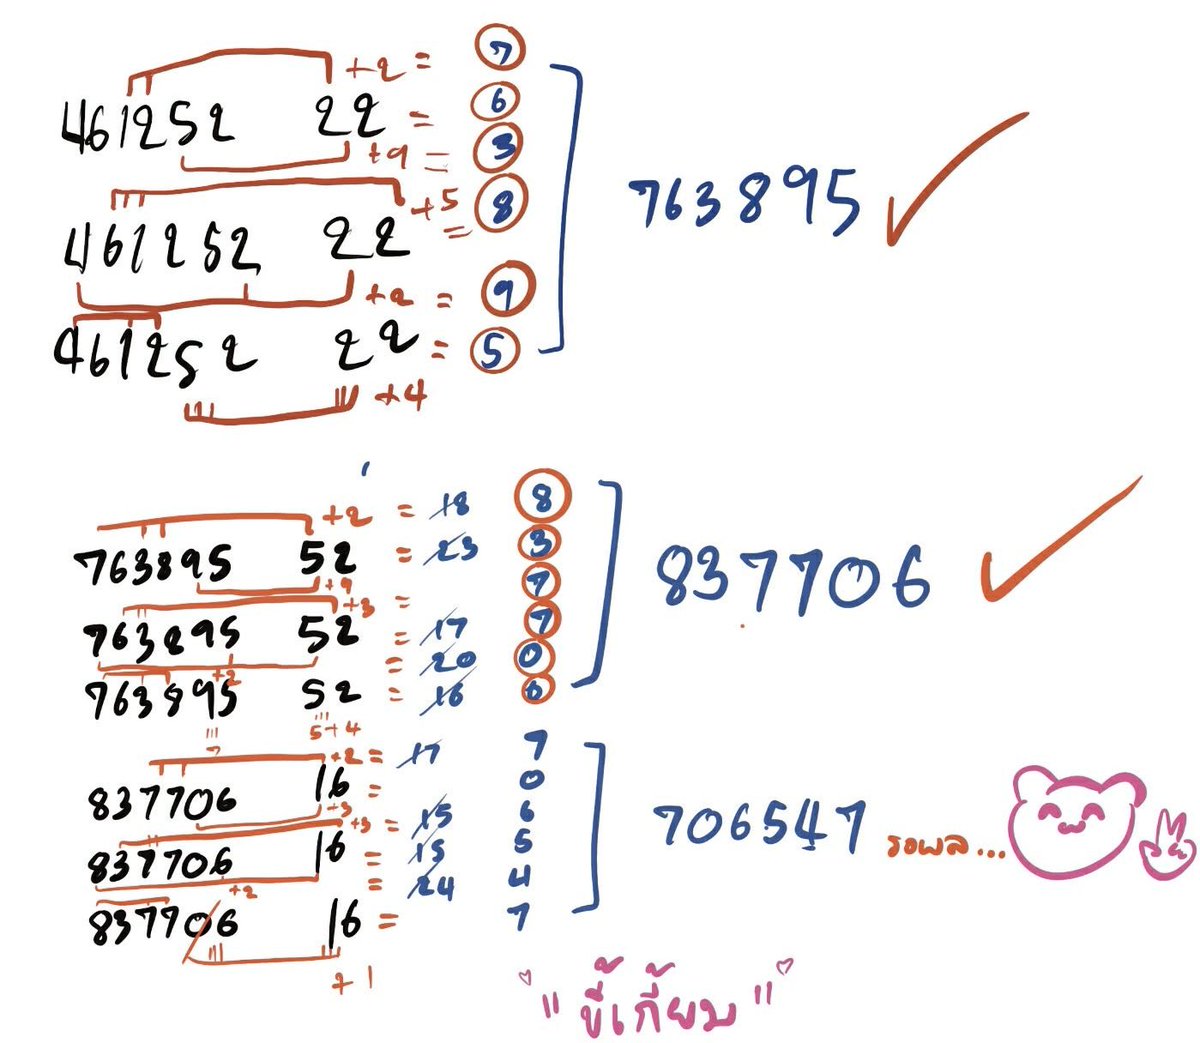 +2 = 7
461252 22 = 6
+9 = 3
+5 = 8
461252 22
+2 = 9
461252 22 = 5
+4
763895
+2 = 18 8
763895 52 = 23 3
+9
+3 = 7
763895 52 = 17 7
= 20 0
+2
763895 52 = 16 6
5+4
837706
+2 = 17 7
837706 16 = 0
+3
+3 = 15 6
837706 16 = 15 5
= 24 4
+2
837706 16 = 7
+1
706547 รอผล...
"ขี้เกี้ยม"